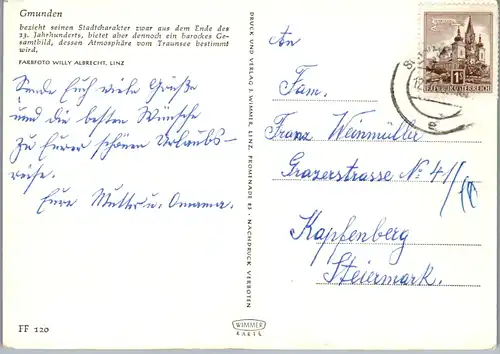 Gmunden
bezieht seinen Stadtcharakter zwar aus dem Ende des
13. Jahrhunderts, bietet aber dennoch ein barockes Ge-
samtbild, dessen Atmosphäre vom Traunsee bestimmt
wird.
FARBFOTO WILLY ALBRECHT, LINZ
Sende Euch viele Grüße
und die besten Wünsche
zu Eurer schönen Urlaubs-
reise.
Eure Mutter u. Omama.
FF 120
DRUCK UND VERLAG J. WIMMER, LINZ, PROMENADE 23 - NACHDRUCK VERBOTEN
WIMMER
KARTE
REPUBLIK ÖSTERREICH
An
Fam.
Franz Weinmüller
Grazerstrasse No 41/
Kapfenberg
Steiermark.